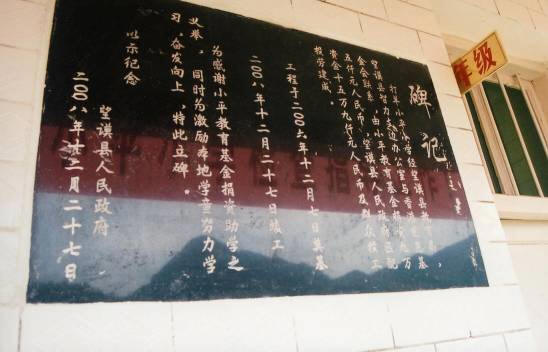 碑记
打羊小平小学经望谟县教育局、
望谟县智力支边办公室与香港小平基
金会联系,由小平教育基金捐资
五仟元人民币,望谟县人民政府匹配
资金十五万九仟元人民币及群众投工
投劳建成。
工程于二〇〇六年十二月七日奠基
二〇〇八年十二月二十七日竣工
为感谢小平教育基金捐资助学之
义举,同时为激励本地学童努力学
习,奋发向上,特此立碑。
以示纪念
望谟县人民政府
二〇〇八年十二月二十七日
年级